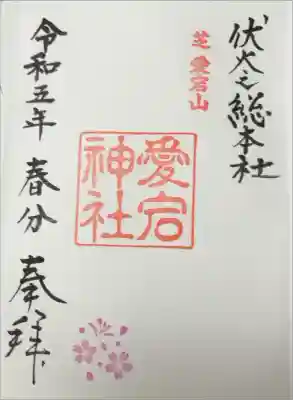 伏火之総本社
芝愛宕山
愛宕神社
令和五年 春分 奉拝